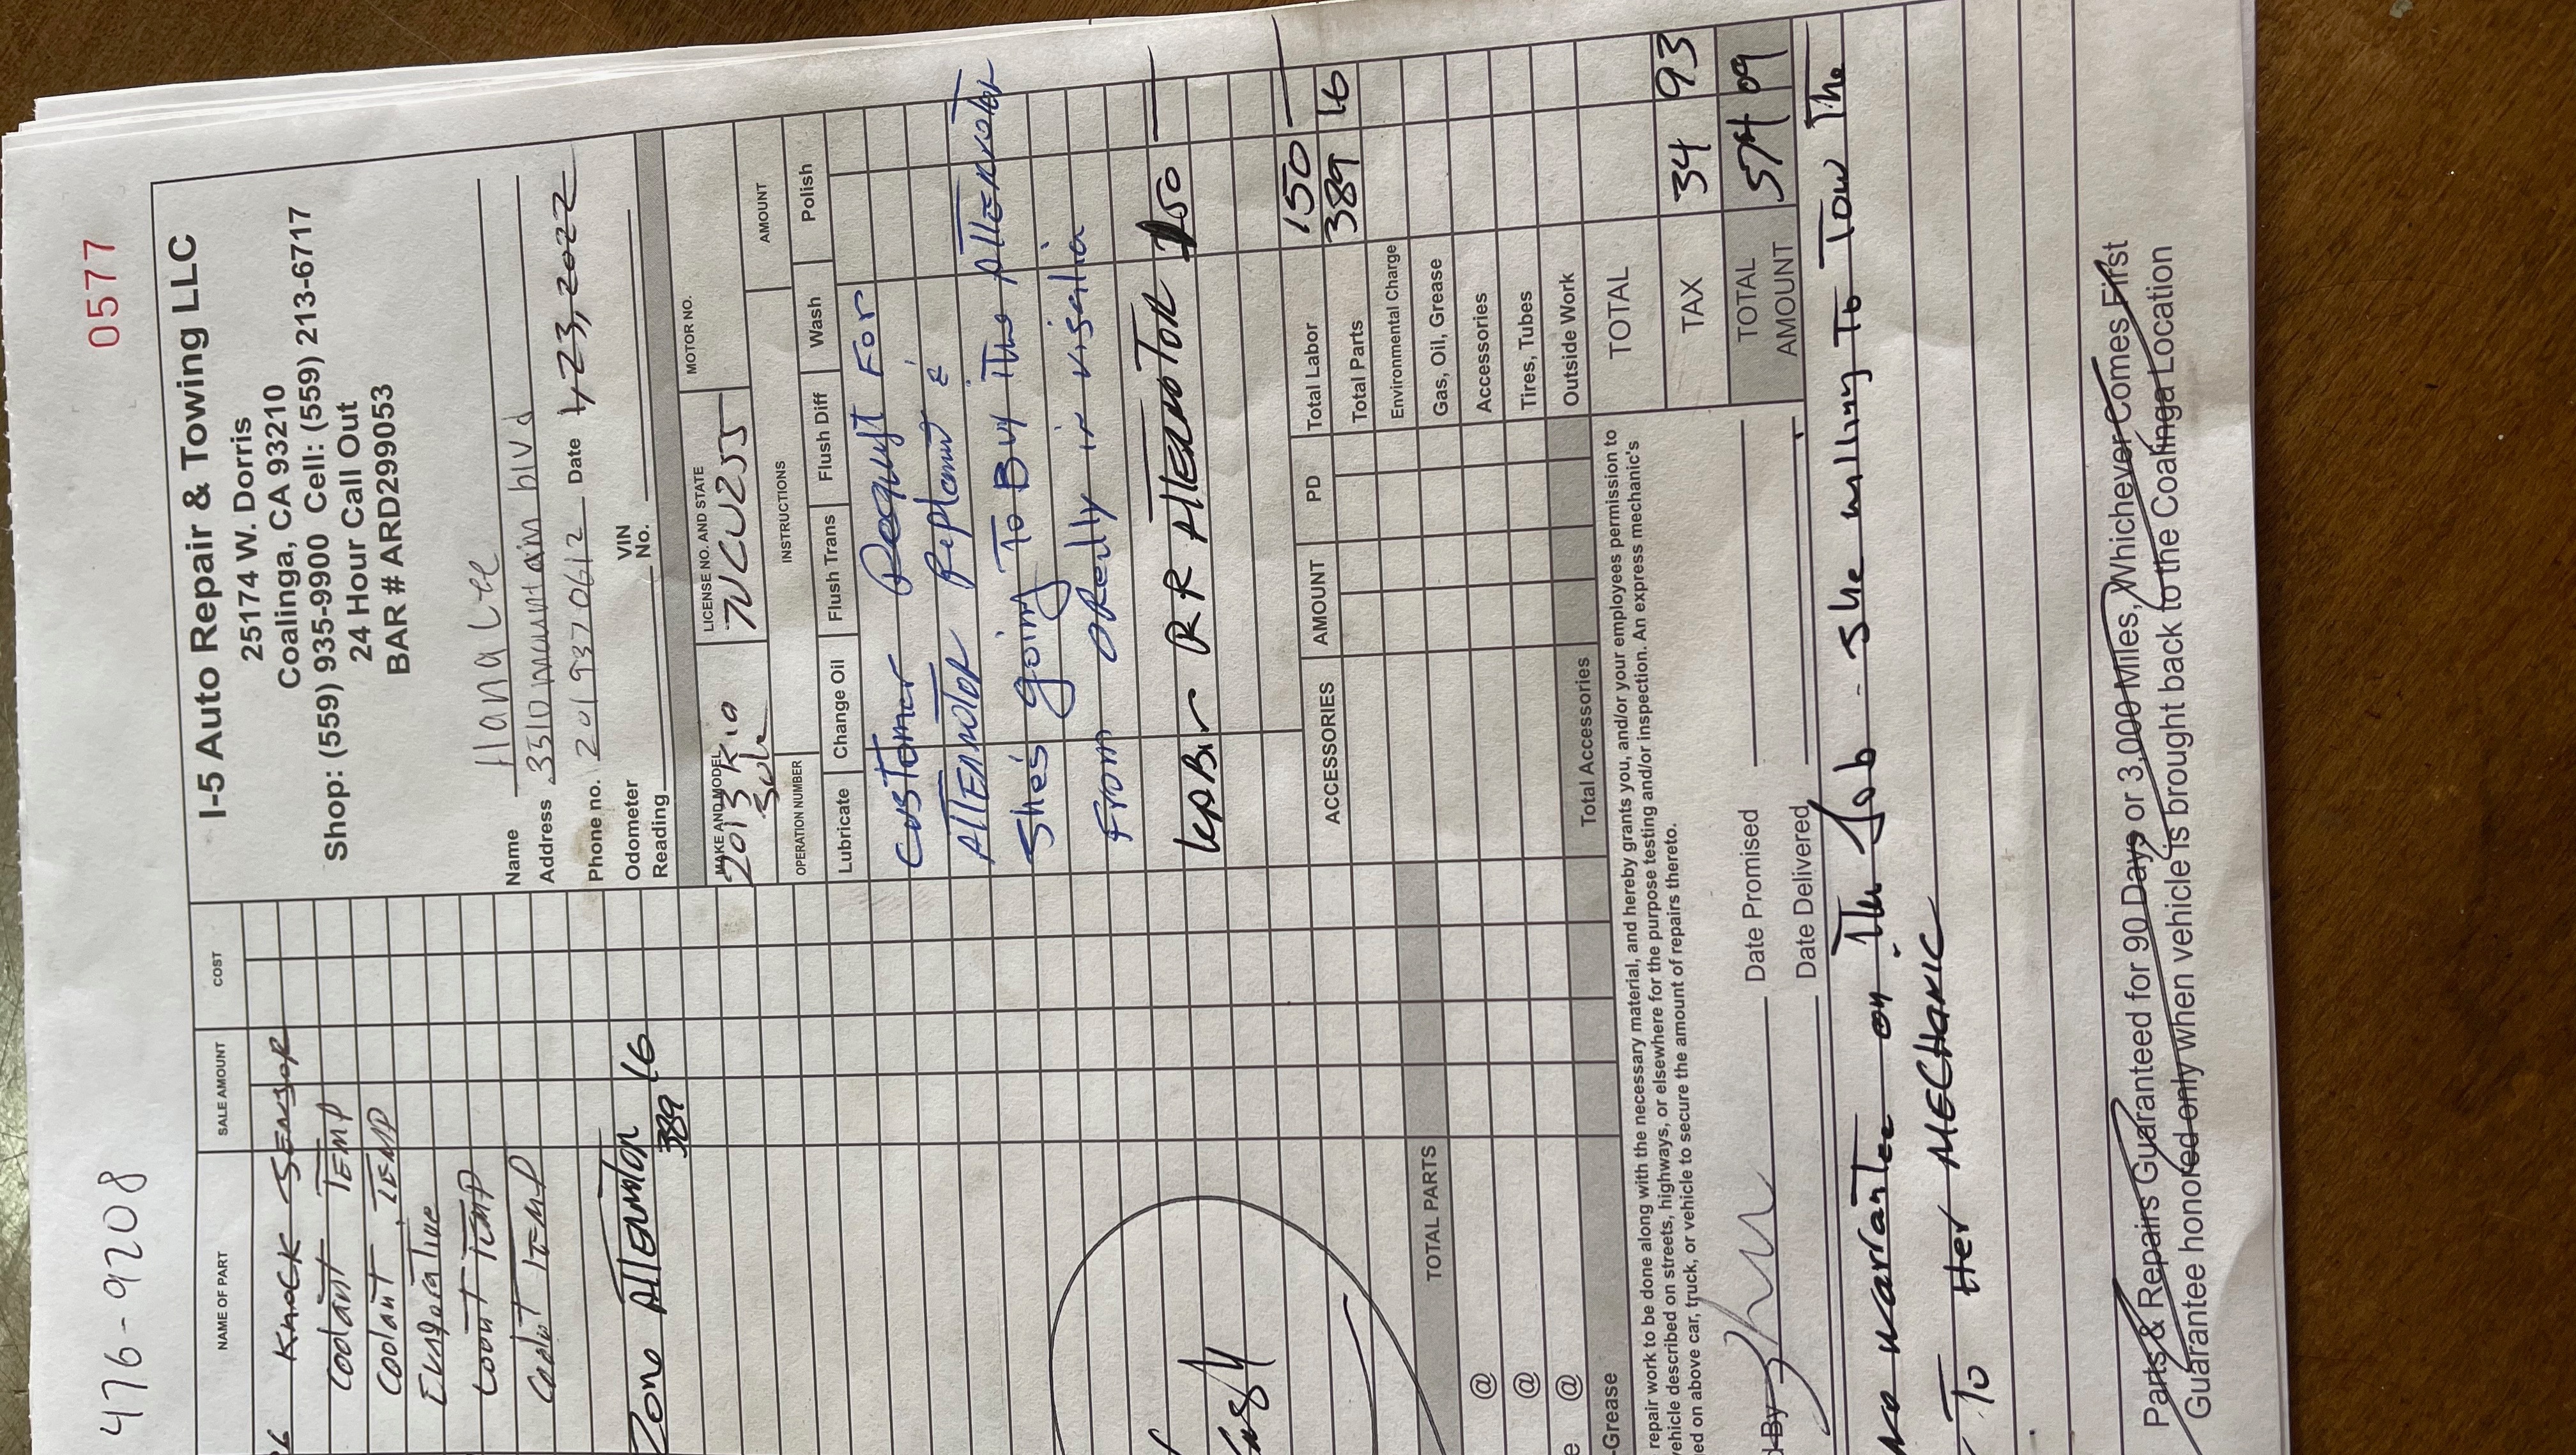 0577
476-9208
I-5 Auto Repair & Towing LLC
25174 W. Dorris
Coalinga, CA 93210
Shop: (559) 935-9900 Cell: (559) 213-6717
24 Hour Call Out
BAR # ARD299053
Name Hana Lee
Address 3310 mountain blvd
Phone no. 201 937 0612 Date 1,23,2022
Odometer Reading VIN No.
MAKE AND MODEL LICENSE NO. AND STATE MOTOR NO.
2013 Kia 7NCU255
OPERATION NUMBER INSTRUCTIONS AMOUNT
Lubricate Change Oil Flush Trans Flush Diff Wash Polish
Customer For
She's going To Buy The
From in visalia
150
NAME OF PART SALE AMOUNT COST
Knock SENSOR
Coolant TEMP
Coolant TEMP
TEMP
TEMP
Zone
389 16
TOTAL PARTS
@
@
@
-Grease
ACCESSORIES AMOUNT PD
Total Accessories
Total Labor 150
Total Parts 389 16
Environmental Charge
Gas, Oil, Grease
Accessories
Tires, Tubes
Outside Work
TOTAL
TAX 34 93
TOTAL AMOUNT 574 09
repair work to be done along with the necessary material, and hereby grants you, and/or your employees permission to
vehicle described on streets, highways, or elsewhere for the purpose testing and/or inspection. An express mechanic's
ed on above car, truck, or vehicle to secure the amount of repairs thereto.
By Date Promised
Date Delivered
no warrantee on The Job - She willing To Tow The
To Her MECHANIC
Parts & Repairs Guaranteed for 90 Days or 3,000 Miles, Whichever Comes First
Guarantee honored only when vehicle is brought back to the Coalinga Location